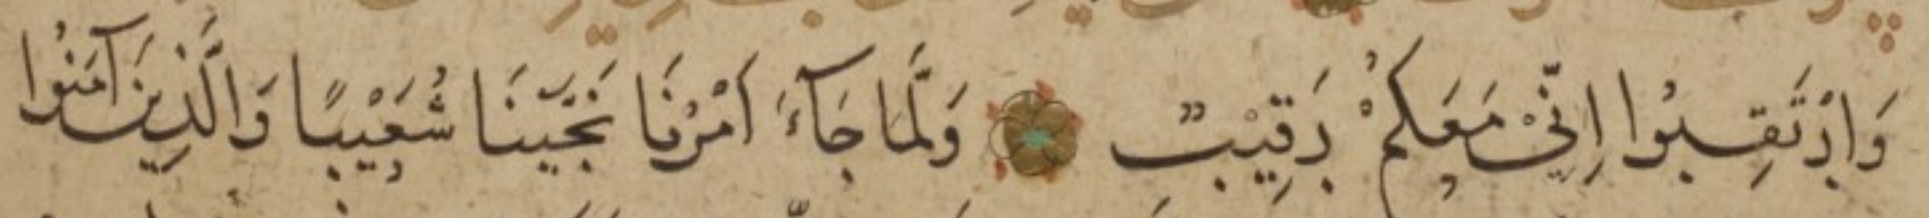 وَارْتَقِبُوا اِنّٖي مَعَكُمْ رَقِيبٌ وَلَمَّا جَآءَ اَمْرُنَا نَجَّيْنَا شُعَيْبًا وَالَّذِينَ آمَنُوا